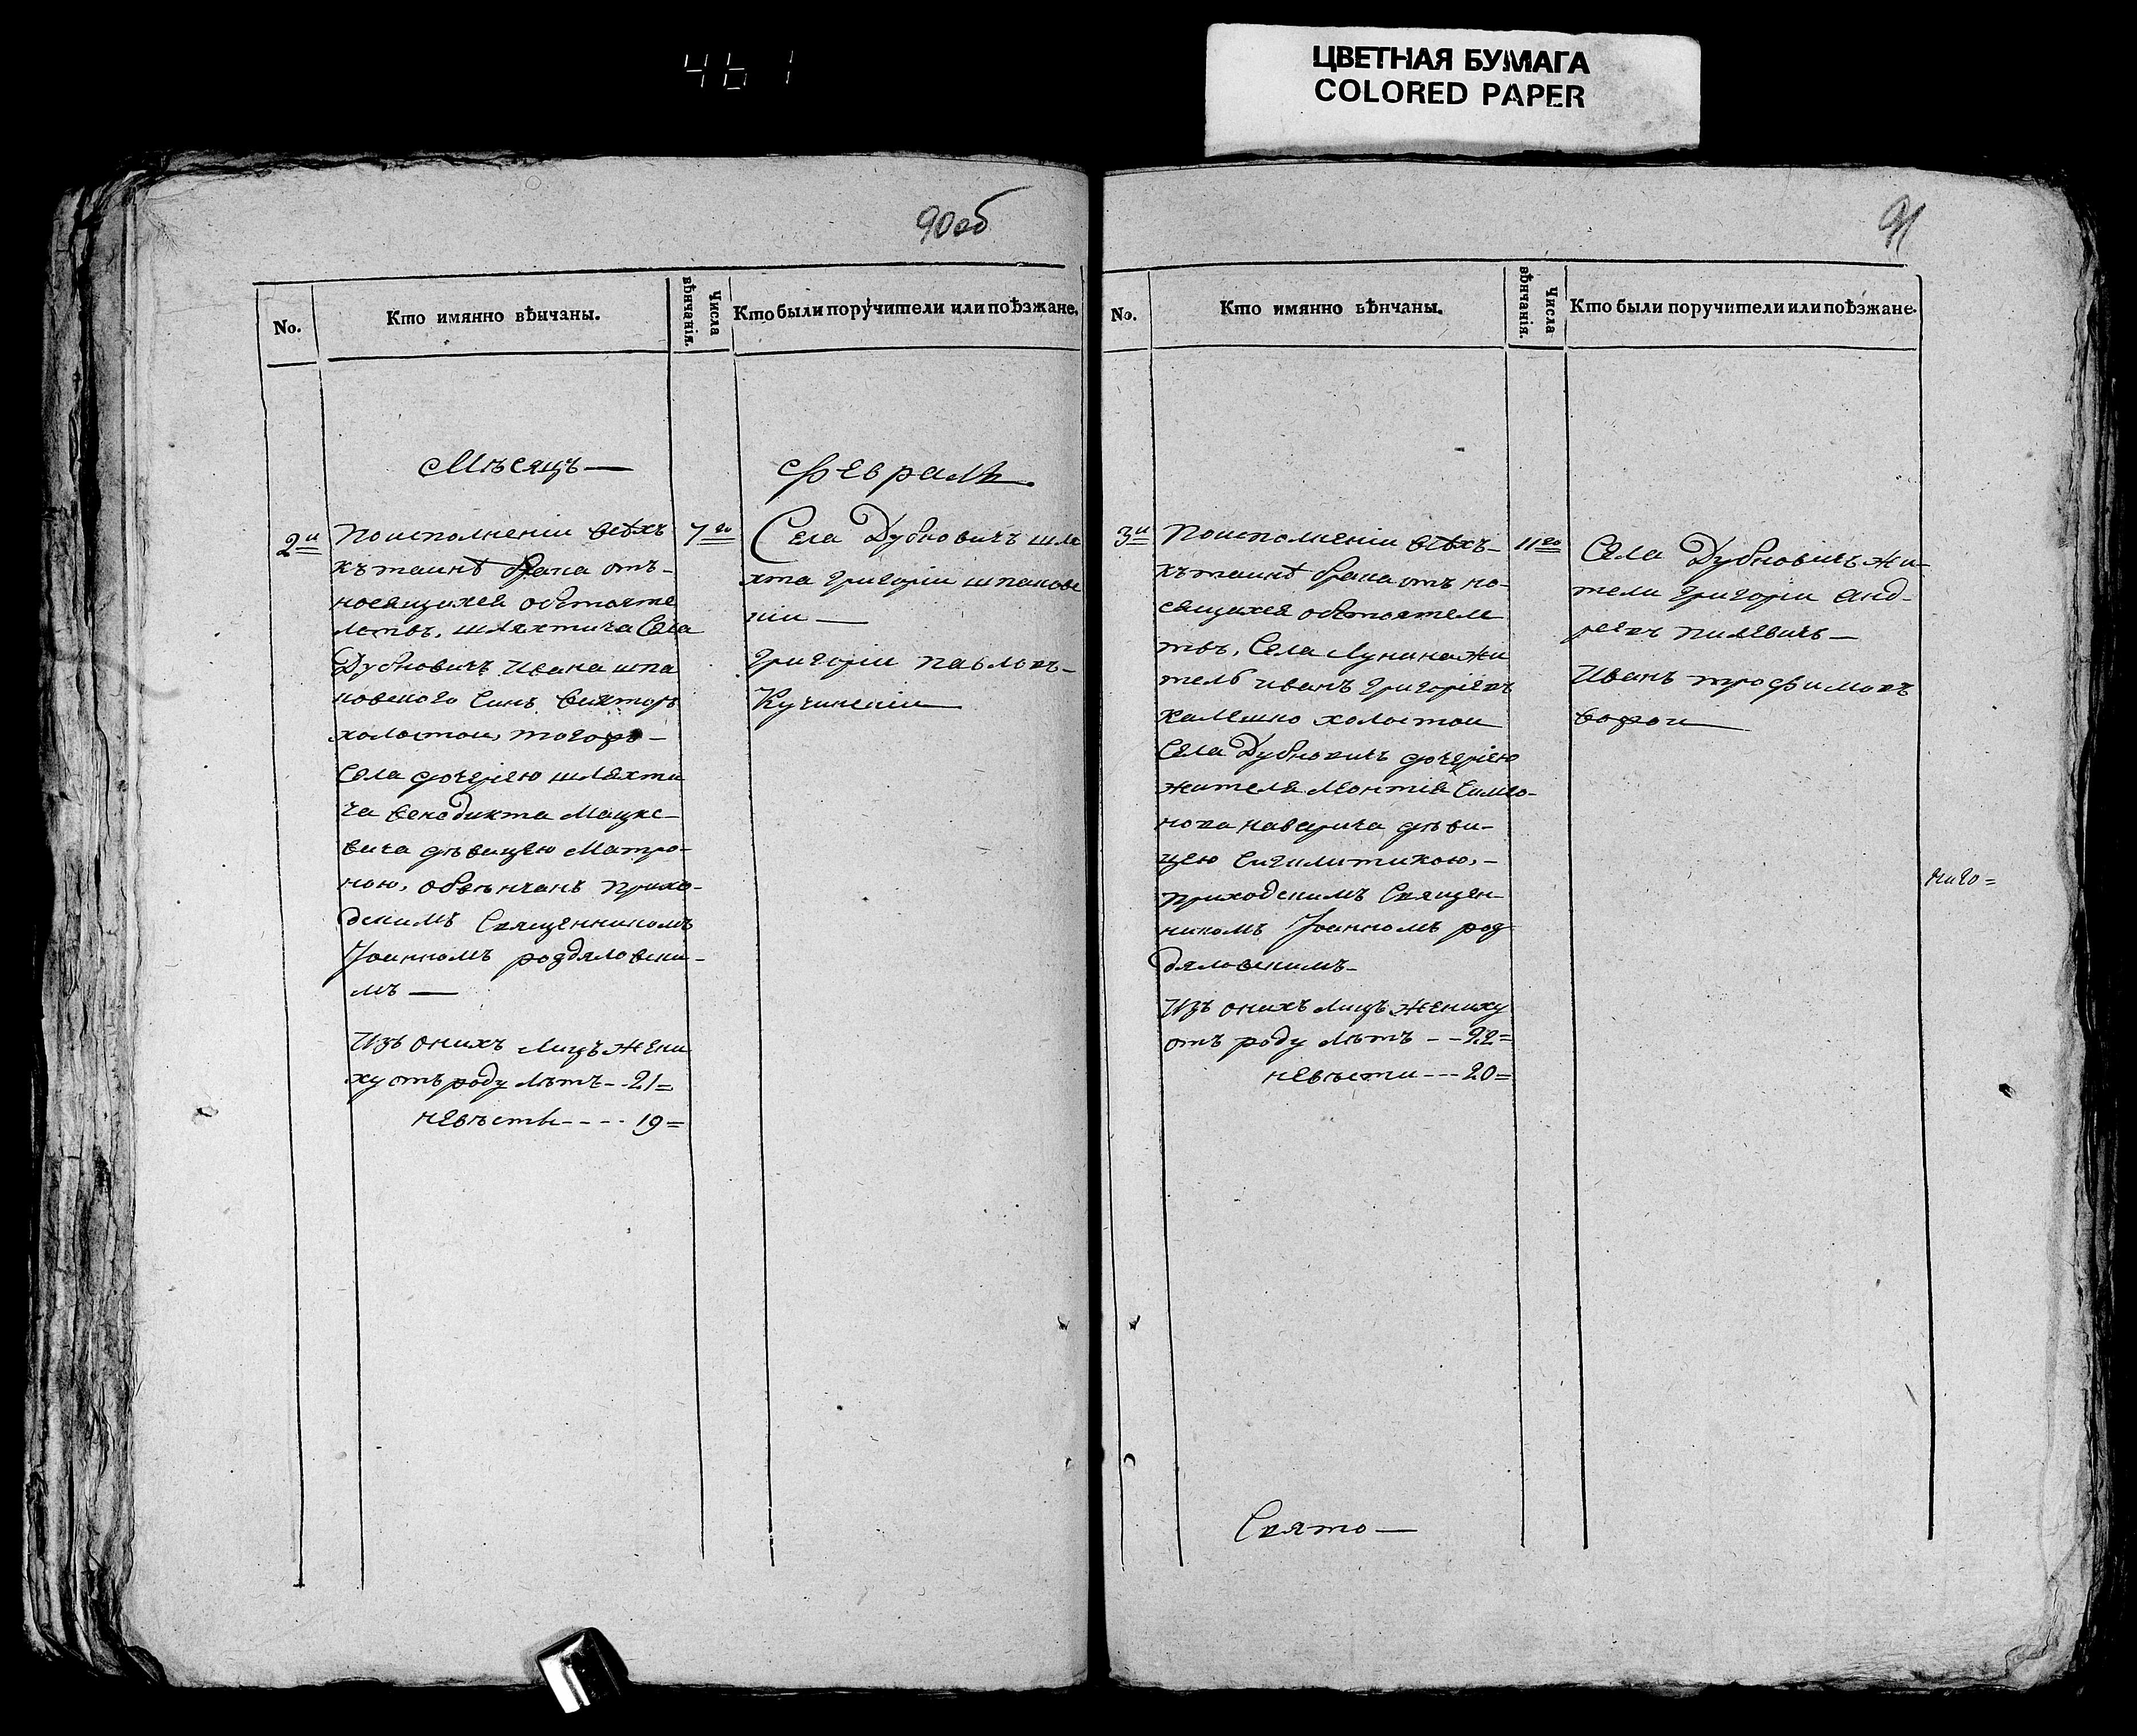 461
ЦВЕТНАЯ БУМАГА
COLORED PAPER
90об
No.
Кто имянно вѣнчаны.
Числа вѣнчанія.
Кто были поручители или поѣзжане.
Мѣсяцъ —
Февраль.
2й
Поисполненіи всѣхъ
къ таинѣ брака отъ-
носящихся обстояте
лствъ, шляхтича Села
Дубновичъ Ивана шпа
ковского Синъ Викторъ
холостои, тогожъ-
Села дочерїею шляхти
ча Венедикта Мацке-
вича дѣвицею Матро-
ною, обвѣнчанъ прихо-
дскимъ Священникомъ
Іоанномъ роздяловски-
мъ —
Изъ онихъ лицъ жени
ху отъ роду лѣтъ -- 21=
невѣсти ---- 19=
7го
Села Дубновичъ шля
хта григорїи шпаковс
кїи —
григорїи павловъ-
Кучинскїи
91
No.
Кто имянно вѣнчаны.
Числа вѣнчанія.
Кто были поручители или поѣзжане.
3й
Поисполненіи всѣхъ-
къ таинѣ брака отъ но-
сящихся обстоятелс
твъ, Села Лунина жи
тель иванъ григорїевъ
холостои
Села Дубновичъ дочерїею
жителя Леонтїя Симео-
нова дѣви-
цею
приходскимъ Священ-
никомъ Іоанномъ роз
дяловскимъ-
Изъ онихъ лицъ жениху
отъ роду лѣтъ -- 22=
невѣсти --- 20=
11го
Села Дубновичъ жи-
тели григорїи анд-
реевъ пилевичъ —
Иванъ трофимовъ
Свято —